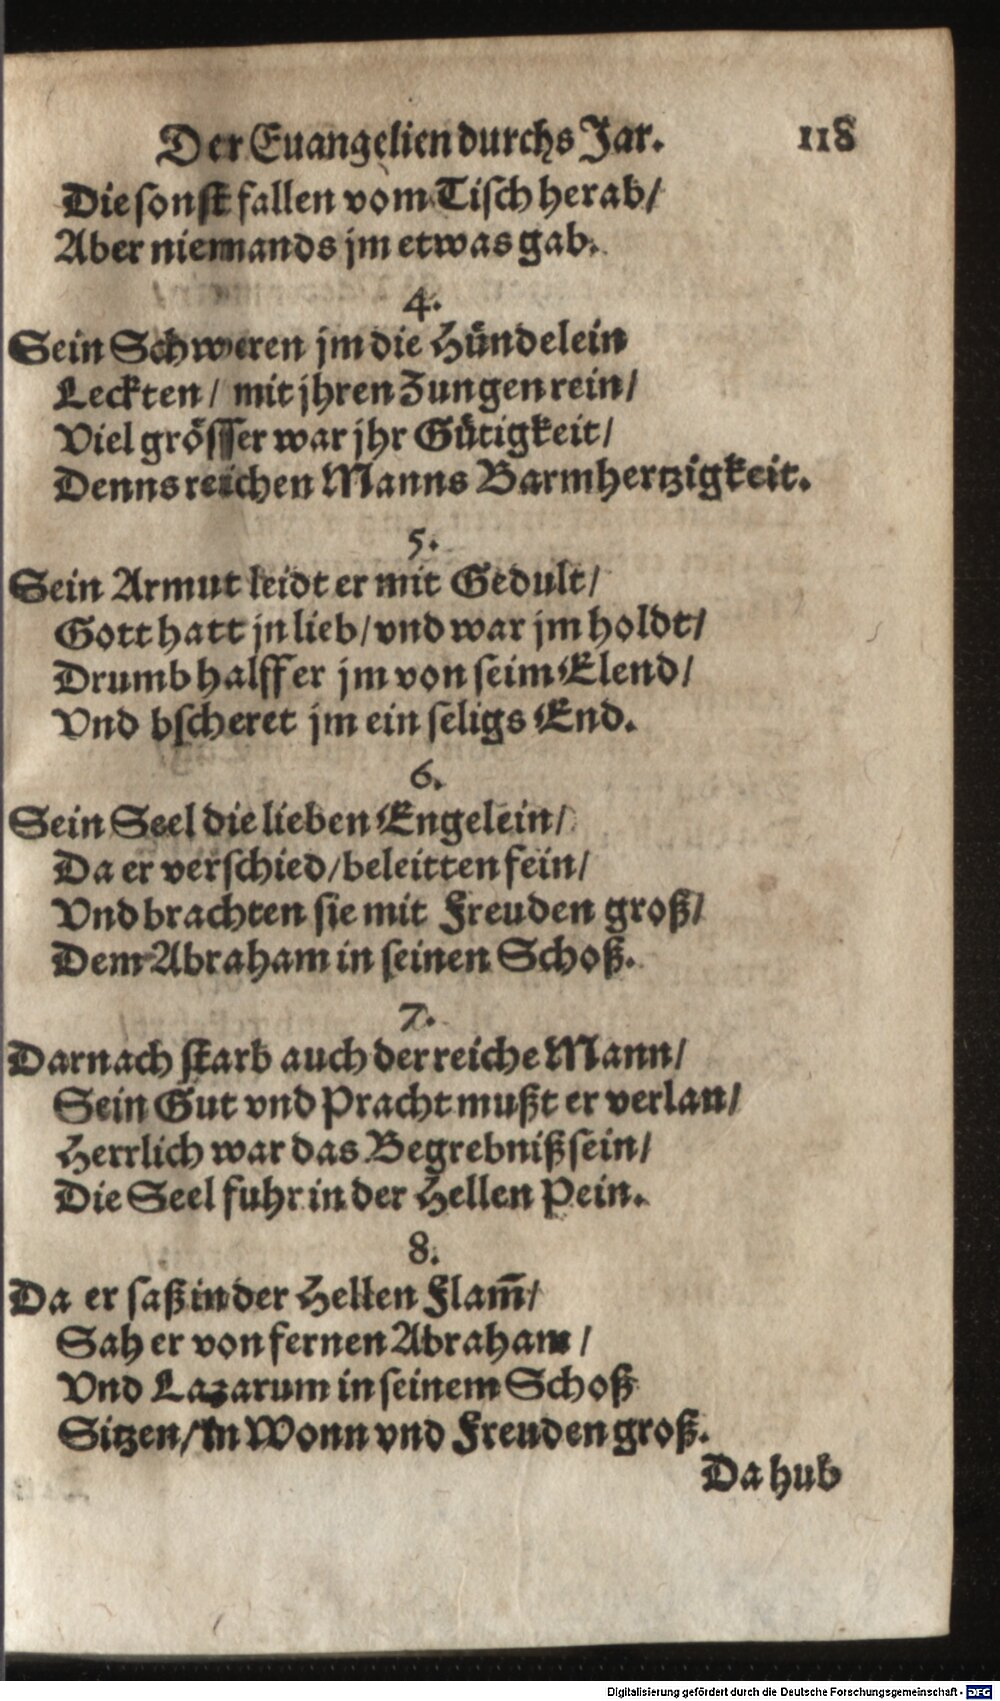 Der Euangelien durchs Jar. 118
Die sonst fallen vom Tisch herab/
Aber niemands jm etwas gab.
4.
Sein Schweren jm die Hündelein
Leckten/ mit jhren Zungen rein/
Viel grösser war jhr Gütigkeit/
Denns reichen Manns Barmhertzigkeit.
5.
Sein Armut leidt er mit Gedult/
Gott hatt jn lieb/ vnd war jm holdt/
Drumb halff er jm von seim Elend/
Vnd bscheret jm ein seligs End.
6.
Sein Seel die lieben Engelein/
Da er verschied/ beleitten fein/
Vnd brachten sie mit Freuden groß/
Dem Abraham in seinen Schoß.
7.
Darnach starb auch der reiche Mann/
Sein Gut vnd Pracht mußt er verlan/
Herrlich war das Begrebniß sein/
Die Seel fuhr in der Hellen Pein.
8.
Da er saß in der Hellen Flam̄/
Sah er von fernen Abraham/
Vnd Lazarum in seinem Schoß
Sitzen/ In Wonn vnd Freuden groß.
Da hub
Digitalisierung gefördert durch die Deutsche Forschungsgemeinschaft - DFG